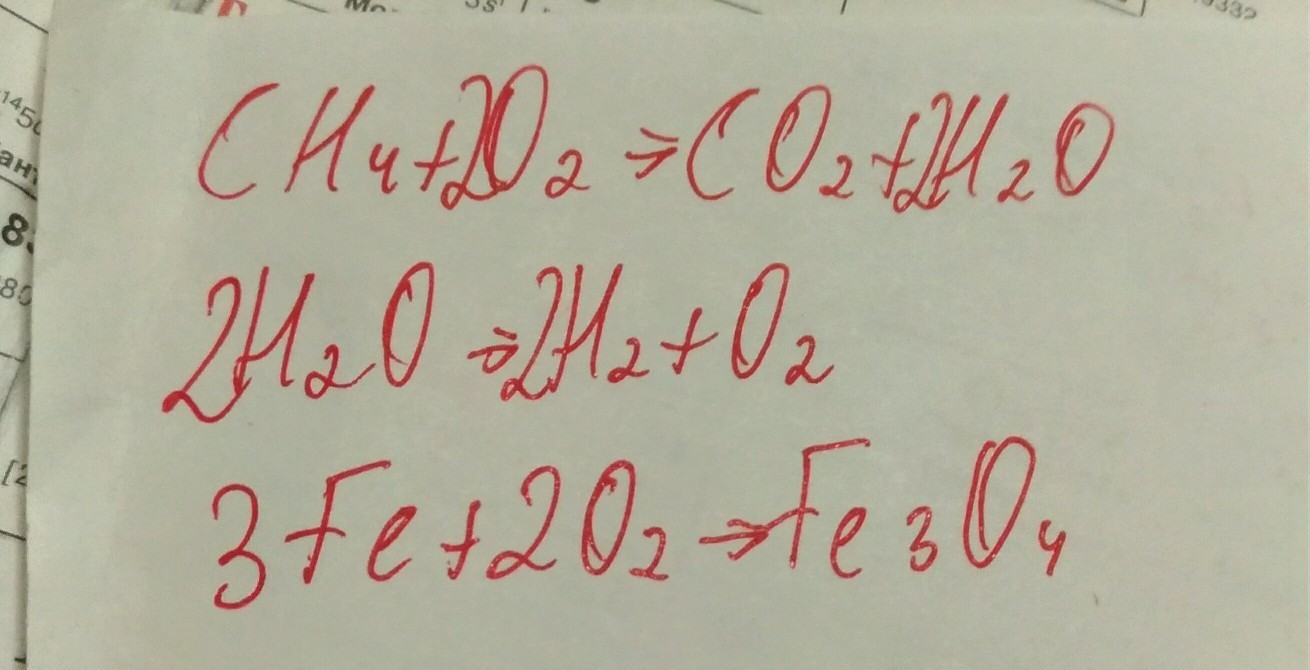 CH₄+2O₂→CO₂+2H₂O
2H₂O→2H₂+O₂
3Fe+2O₂→Fe₃O₄